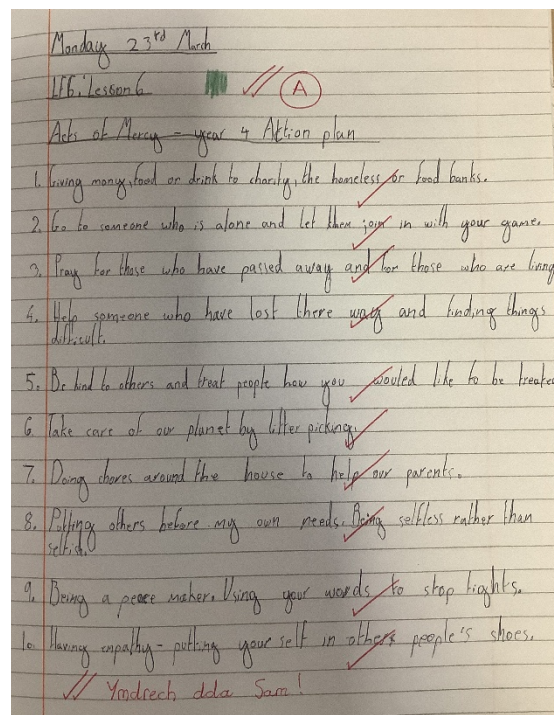 Monday 23rd March
LF6: Lesson 6 A
Acts of Mercy - year 4 Action plan
1. Giving mony, food or drink to charity, the homeless or food banks.
2. Go to someone who is alone and let them join in with your game.
3. Pray for those who have passed away and for those who are living
4. Help someone who have lost there way and finding things
difficult.
5. Be kind to others and treat people how you wouled like to be treated
6. Take care of our planet by litter picking.
7. Doing chores around the house to help our parents.
8. Putting others before my own needs. Being selfless rather than
selfish.
9. Being a peace maker. Using your words to stop fights.
10. Having empathy - putting your self in others people's shoes.
Ymdrech dda Sam!